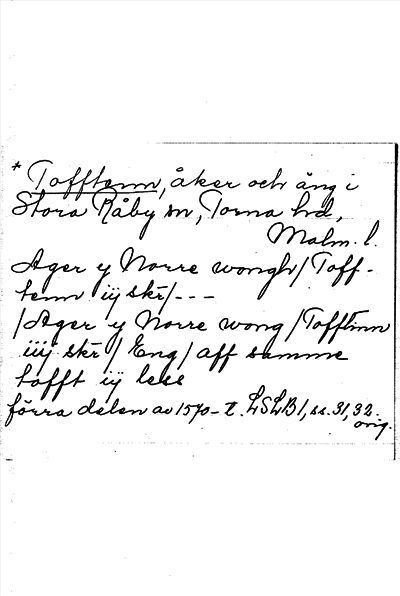 * Tofftenn, åker och äng i
Stora Råby sn, Torna hd,
Malm. l.
Ager y Norre wongh / Toff-
tenn iij skr / - - -
/ Ager y Norre wong / Tofftinn
iiij skr / Eng / aff samme
tofft ij less
förra delen av 1570-t. LSLB 1, ss. 31, 32.
orig.